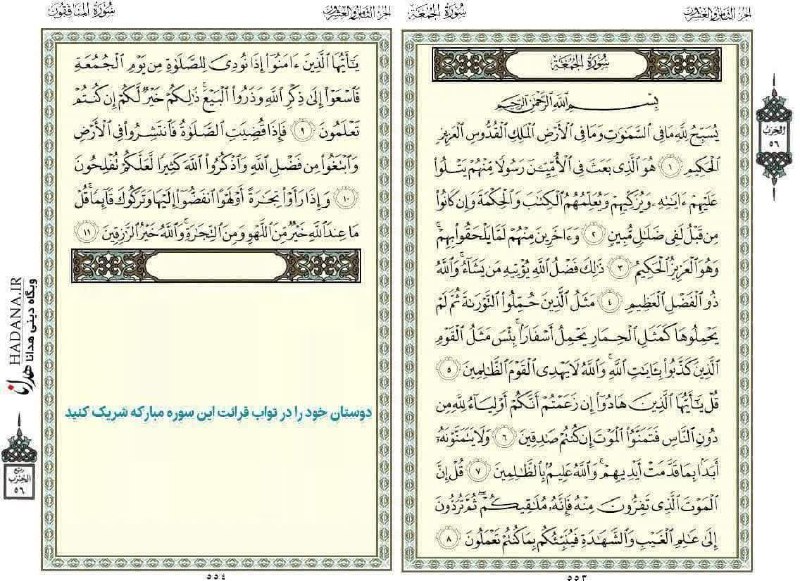 الجزء الثامن والعشرون
سُورَةُ الجُمُعَة
سُورَةُ الجُمُعَةِ
بِسْمِ ٱللَّهِ ٱلرَّحْمَٰنِ ٱلرَّحِيمِ
يُسَبِّحُ لِلَّهِ مَا فِى ٱلسَّمَٰوَٰتِ وَمَا فِى ٱلْأَرْضِ ٱلْمَلِكِ ٱلْقُدُّوسِ ٱلْعَزِيزِ
ٱلْحَكِيمِ ١ هُوَ ٱلَّذِى بَعَثَ فِى ٱلْأُمِّيِّۦنَ رَسُولًا مِّنْهُمْ يَتْلُوا۟
عَلَيْهِمْ ءَايَٰتِهِۦ وَيُزَكِّيهِمْ وَيُعَلِّمُهُمُ ٱلْكِتَٰبَ وَٱلْحِكْمَةَ وَإِن كَانُوا۟
مِن قَبْلُ لَفِى ضَلَٰلٍ مُّبِينٍ ٢ وَءَاخَرِينَ مِنْهُمْ لَمَّا يَلْحَقُوا۟ بِهِمْ ۚ
وَهُوَ ٱلْعَزِيزُ ٱلْحَكِيمُ ٣ ذَٰلِكَ فَضْلُ ٱللَّهِ يُؤْتِيهِ مَن يَشَآءُ ۚ وَٱللَّهُ
ذُو ٱلْفَضْلِ ٱلْعَظِيمِ ٤ مَثَلُ ٱلَّذِينَ حُمِّلُوا۟ ٱلتَّوْرَىٰةَ ثُمَّ لَمْ
يَحْمِلُوهَا كَمَثَلِ ٱلْحِمَارِ يَحْمِلُ أَسْفَارًۢا ۚ بِئْسَ مَثَلُ ٱلْقَوْمِ
ٱلَّذِينَ كَذَّبُوا۟ بِـَٔايَٰتِ ٱللَّهِ ۚ وَٱللَّهُ لَا يَهْدِى ٱلْقَوْمَ ٱلظَّٰلِمِينَ ٥
قُلْ يَٰٓأَيُّهَا ٱلَّذِينَ هَادُوٓا۟ إِن زَعَمْتُمْ أَنَّكُمْ أَوْلِيَآءُ لِلَّهِ مِن
دُونِ ٱلنَّاسِ فَتَمَنَّوُا۟ ٱلْمَوْتَ إِن كُنتُمْ صَٰدِقِينَ ٦ وَلَا يَتَمَنَّوْنَهُۥٓ
أَبَدًۢا بِمَا قَدَّمَتْ أَيْدِيهِمْ ۚ وَٱللَّهُ عَلِيمٌۢ بِٱلظَّٰلِمِينَ ٧ قُلْ إِنَّ
ٱلْمَوْتَ ٱلَّذِى تَفِرُّونَ مِنْهُ فَإِنَّهُۥ مُلَٰقِيكُمْ ۖ ثُمَّ تُرَدُّونَ
إِلَىٰ عَٰلِمِ ٱلْغَيْبِ وَٱلشَّهَٰدَةِ فَيُنَبِّئُكُم بِمَا كُنتُمْ تَعْمَلُونَ ٨
٥٥٣
الحزب
٥٦
الجزء الثامن والعشرون
سُورَةُ المنافقون
يَٰٓأَيُّهَا ٱلَّذِينَ ءَامَنُوٓا۟ إِذَا نُودِىَ لِلصَّلَوٰةِ مِن يَوْمِ ٱلْجُمُعَةِ
فَٱسْعَوْا۟ إِلَىٰ ذِكْرِ ٱللَّهِ وَذَرُوا۟ ٱلْبَيْعَ ۚ ذَٰلِكُمْ خَيْرٌ لَّكُمْ إِن كُنتُمْ
تَعْلَمُونَ ٩ فَإِذَا قُضِيَتِ ٱلصَّلَوٰةُ فَٱنتَشِرُوا۟ فِى ٱلْأَرْضِ
وَٱبْتَغُوا۟ مِن فَضْلِ ٱللَّهِ وَٱذْكُرُوا۟ ٱللَّهَ كَثِيرًا لَّعَلَّكُمْ تُفْلِحُونَ
١٠ وَإِذَا رَأَوْا۟ تِجَٰرَةً أَوْ لَهْوًا ٱنفَضُّوٓا۟ إِلَيْهَا وَتَرَكُوكَ قَآئِمًا ۚ قُلْ
مَا عِندَ ٱللَّهِ خَيْرٌ مِّنَ ٱللَّهْوِ وَمِنَ ٱلتِّجَٰرَةِ ۚ وَٱللَّهُ خَيْرُ ٱلرَّٰزِقِينَ ١١
دوستان خود را در ثواب قرائت این سوره مبارکه شریک کنید
٥٥٤
HADANA.IR
وبگاه دینی هدانا
هدانا
ربع
الحزب
٥٦